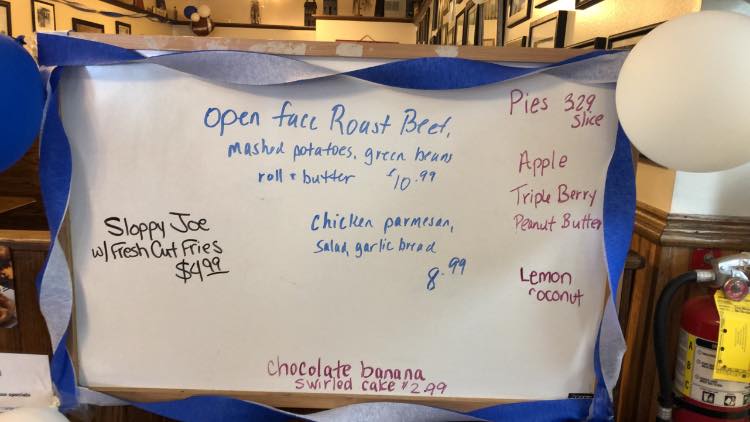 Open face Roast Beef,
mashed potatoes, green beans
roll + butter $10.99
Sloppy Joe
w/ Fresh Cut Fries
$4.99
Chicken parmesan,
Salad, garlic bread
8.99
Pies 3.29
slice
Apple
Triple Berry
Peanut Butter
Lemon
Coconut
chocolate banana
swirled cake $2.99